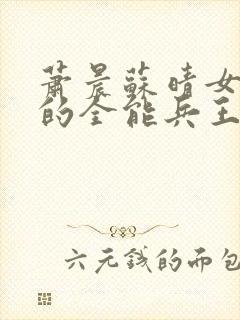 萧晨蘇晴女
的全能兵王
六元钱的而包